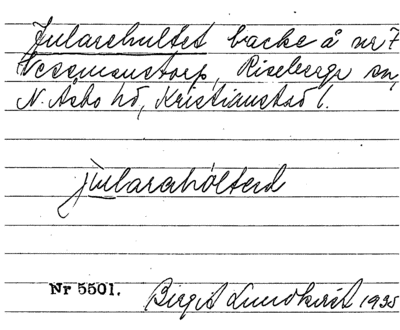 Jularehultet backe å nr 7
Wessmanstorp, Riseberga sn,
N. Åsbo hd, Kristianstad l.
jularahólted
Nr 5501. Birgit Lundkvist 1935